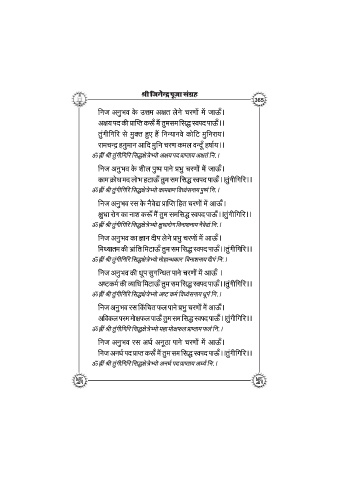 श्री जिनेन्द्र पूजा संग्रह
365
निज अनुभव के उत्तम अक्षत लेने चरणों में जाऊँ।
अक्षय पद की प्राप्ति करूँ मैं तुमसम सिद्ध स्वपद पाऊँ।।
तुंगीगिरि से मुक्त हुए हैं निन्यानवे कोटि मुनिराय।
रामचन्द्र हनुमान आदि मुनि चरण कमल वन्दूँ हर्षाय।।
ॐ ह्रीं श्री तुंगीगिरि सिद्धक्षेत्रेभ्यो अक्षय पद प्राप्ताय अक्षतं नि.।
निज अनुभव के शील पुष्प पाने प्रभु चरणों में जाऊँ।
काम क्रोध मद लोभ हटाऊँ तुम सम सिद्ध स्वपद पाऊँ।।तुंगीगिरि।।
ॐ ह्रीं श्री तुंगीगिरि सिद्धक्षेत्रेभ्यो कामबाण विध्वंसनाय पुष्पं नि.।
निज अनुभव रस के नैवेद्य प्राप्ति हित चरणों में आऊँ।
क्षुधा रोग का नाश करूँ मैं तुम समसिद्ध स्वपद पाऊँ।।तुंगीगिरि।।
ॐ ह्रीं श्री तुंगीगिरि सिद्धक्षेत्रेभ्यो क्षुधारोग विनाशनाय नैवेद्यं नि.।
निज अनुभव का ज्ञान दीप लेने प्रभु चरणों में आऊँ।
मिथ्यातम की भ्रांति मिटाऊँ तुम सम सिद्ध स्वपद पाऊँ।।तुंगीगिरि।।
ॐ ह्रीं श्री तुंगीगिरि सिद्धक्षेत्रेभ्यो मोहान्धकार विनाशनाय दीपं नि.।
निज अनुभव की धूप सुगन्धित पाने चरणों में आऊँ ।
अष्टकर्म की व्याधि मिटाऊँ तुम सम सिद्ध स्वपद पाऊँ।।तुंगीगिरि।।
ॐ ह्रीं श्री तुंगीगिरि सिद्धक्षेत्रेभ्यो अष्ट कर्म विध्वंसनाय धूपं नि.।
निज अनुभव रस किंचित फल पाने प्रभु चरणों में आऊँ।
अविकल परम मोक्षफल पाऊँ तुम सम सिद्ध स्वपद पाऊँ।।तुंगीगिरि।।
ॐ ह्रीं श्री तुंगीगिरि सिद्धक्षेत्रेभ्यो महा मोक्षफल प्राप्ताय फलं नि.।
निज अनुभव रस अर्घ अनूठा पाने चरणों में आऊँ।
निज अनर्घ पद प्राप्त करूँ मैं तुम सम सिद्ध स्वपद पाऊँ।।तुंगीगिरि।।
ॐ ह्रीं श्री तुंगीगिरि सिद्धक्षेत्रेभ्यो अनर्घ पद प्राप्ताय अर्घ्यं नि.।